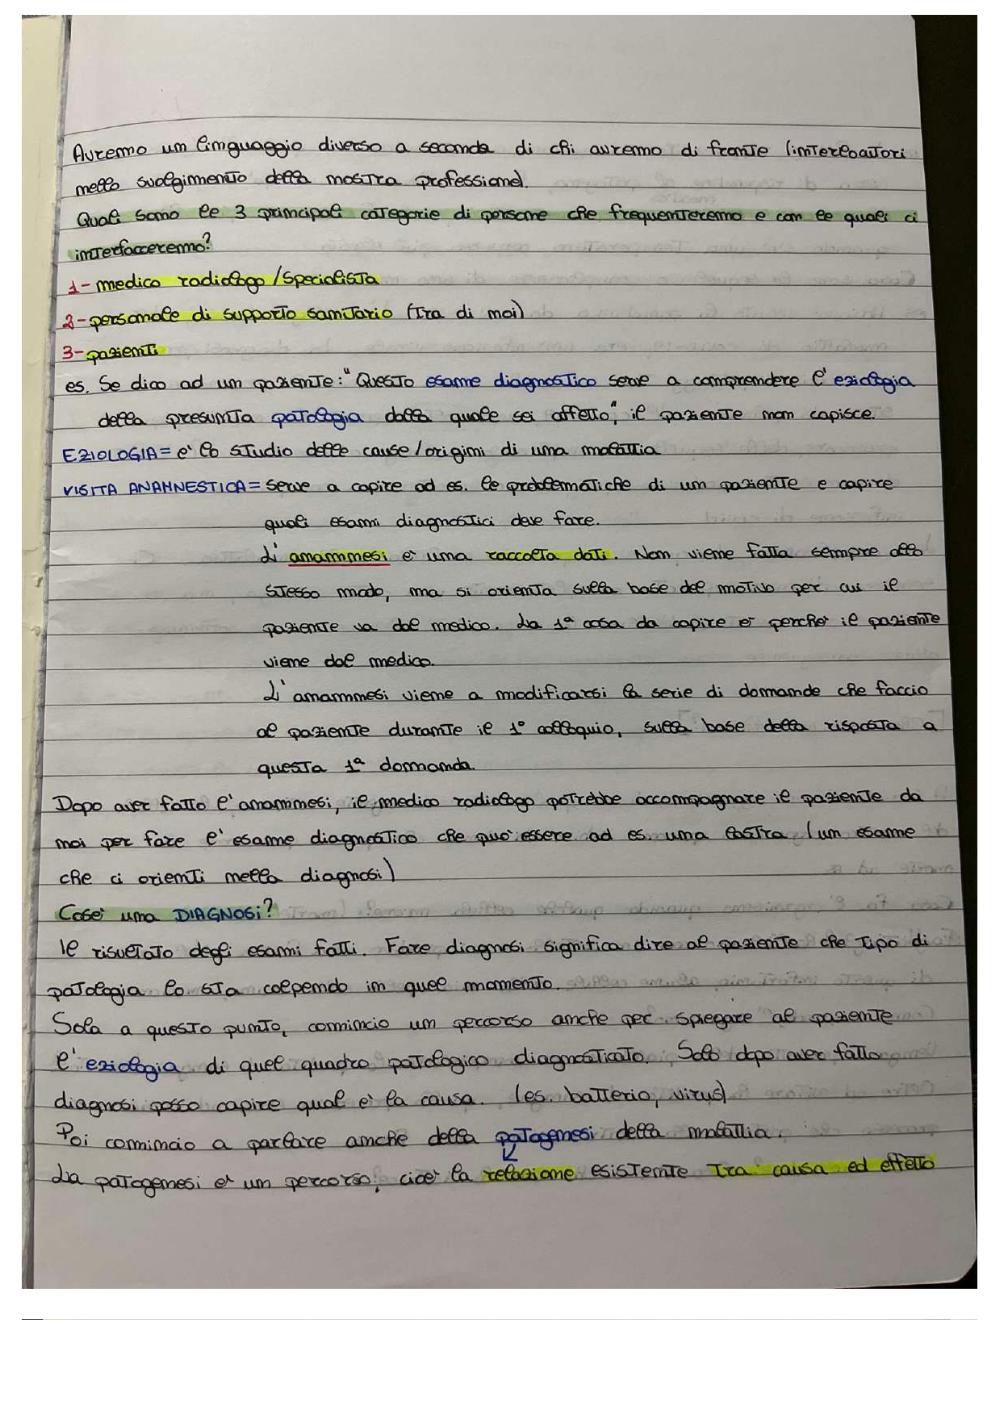 Avremo un linguaggio diverso a seconda di chi avremo di fronte (interlocutori
nello svolgimento della nostra professione).
Quali sono le 3 principali categorie di persone che frequenteremo e con le quali ci
interfacceremo?
1- medico radiologo/specialista
2- personale di supporto sanitario (tra di noi)
3- pazienti
es. Se dico ad un paziente: "Questo esame diagnostico serve a comprendere l'eziologia
della presunta patologia dalla quale sei affetto", il paziente non capisce.
EZIOLOGIA = è lo studio delle cause/origini di una malattia
VISITA ANAMNESTICA = serve a capire ad es. le problematiche di un paziente e capire
quali esami diagnostici deve fare.
L'anammesi è una raccolta dati. Non viene fatta sempre allo
stesso modo, ma si orienta sulla base del motivo per cui il
paziente va dal medico. La 1ª cosa da capire è perché il paziente
viene dal medico.
L'anammesi viene a modificarsi la serie di domande che faccio
al paziente durante il 1° colloquio, sulla base della risposta a
questa 1ª domanda.
Dopo aver fatto l'anammesi, il medico radiologo potrebbe accompagnare il paziente da
noi per fare l'esame diagnostico che può essere ad es. una lastra (un esame
che ci orienti nella diagnosi)
Cos'è una DIAGNOSI?
Il risultato degli esami fatti. Fare diagnosi significa dire al paziente che tipo di
patologia lo sta colpendo in quel momento.
Solo a questo punto, comincio un percorso anche per spiegare al paziente
l'eziologia di quel quadro patologico diagnosticato. Solo dopo aver fatto
diagnosi posso capire qual è la causa. (es. batterio, virus)
Poi comincio a parlare anche della patogenesi della malattia.
La patogenesi è un percorso, cioè la relazione esistente tra causa ed effetto